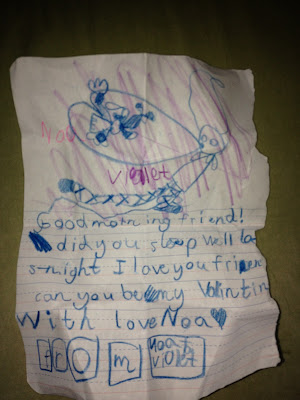 Noa
violet
Good morning friend!
did you sleep well la
s-night I love you friend
can you be my Valintin
With love Noa
fro m noa t violet